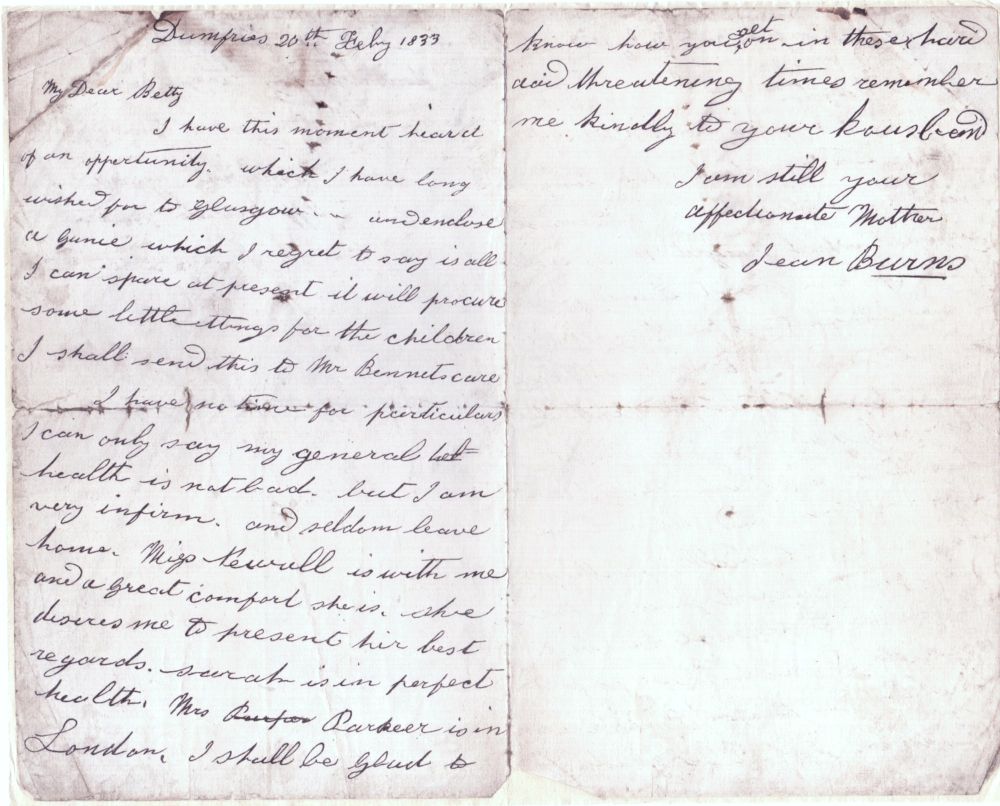 Dumfries 20th Feby 1833
My Dear Betty
I have this moment heard
of an opportunity. which I have long
wished for to Glasgow. . and enclose
a gunie which I regret to say is all
I can spare at present it will procure
some little things for the children
I shall send this to Mr Bennets care
I have no time for pairticulars
I can only say my general
health is not bad. but I am
very infirm. and seldom leave
home. Miss Newall is with me
and a great comfort she is. she
desires me to present hir best
regards. Sarah is in perfect
health. Mrs Parkeer is in
London. I shall be glad to
know how you get on in these hard
and threatening times remember
me kindly to your housband
I am still your
affectionate Mother
Jean Burns